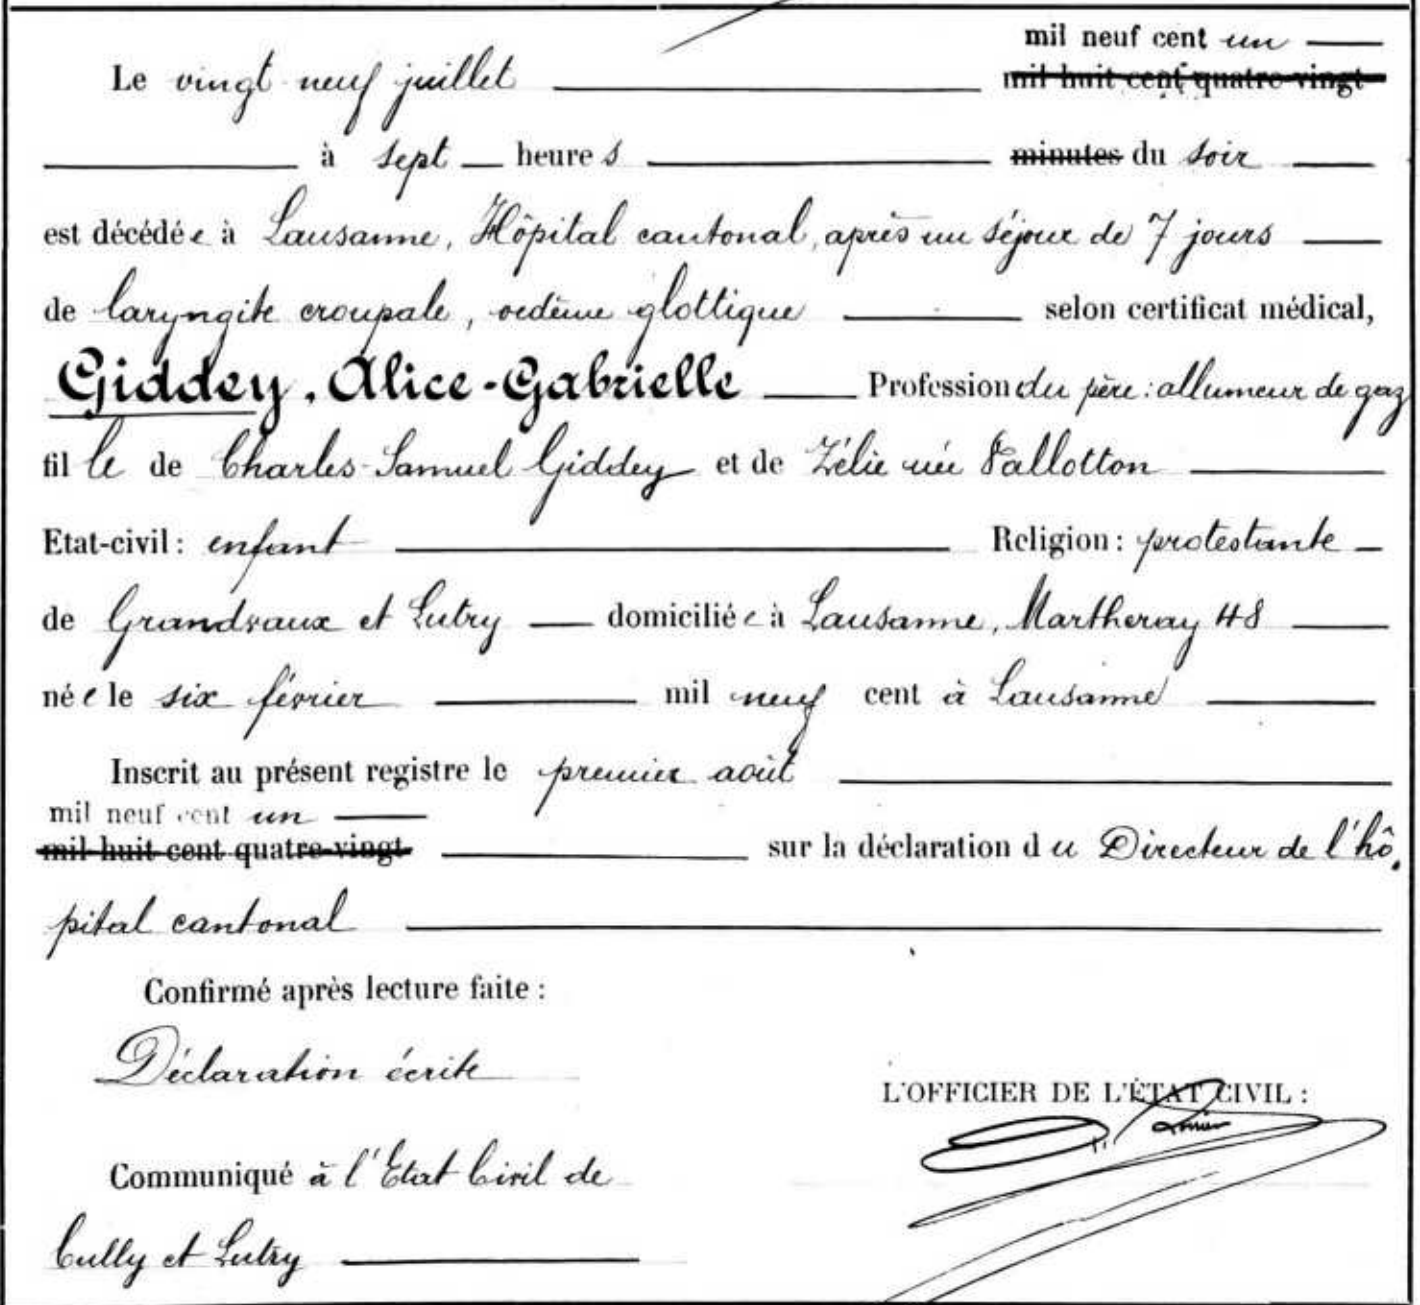 mil neuf cent un
Le vingt neuf juillet mil huit cent quatre-vingt
à sept heures minutes du soir
est décédée à Lausanne, Hôpital cantonal, après un séjour de 7 jours
de laryngite croupale, oedème glottique selon certificat médical,
Giddey, Alice-Gabrielle Profession du père: allumeur de gaz
fille de Charles-Samuel Giddey et de Zélie née Vallotton
Etat-civil: enfant Religion: protestante
de Grandvaux et Lutry domiciliée à Lausanne, Martheray 48
née le six février mil neuf cent à Lausanne
Inscrit au présent registre le premier août
mil neuf cent un
mil huit cent quatre-vingt sur la déclaration du Directeur de l'hô-
pital cantonal
Confirmé après lecture faite:
Déclaration écrite
L'OFFICIER DE L'ÉTAT CIVIL:
Communiqué à l'Etat Civil de
Cully et Lutry